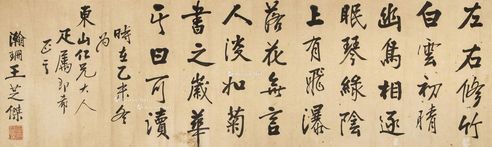 左右修竹
白雲初晴
幽鳥相逐
眠琴綠陰
上有飛瀑
落花無言
人淡如菊
書之歲華
其曰可讀
時在乙未冬
為
東山仁兄大人
疋屬即希
正之
瀚珊王芝傑